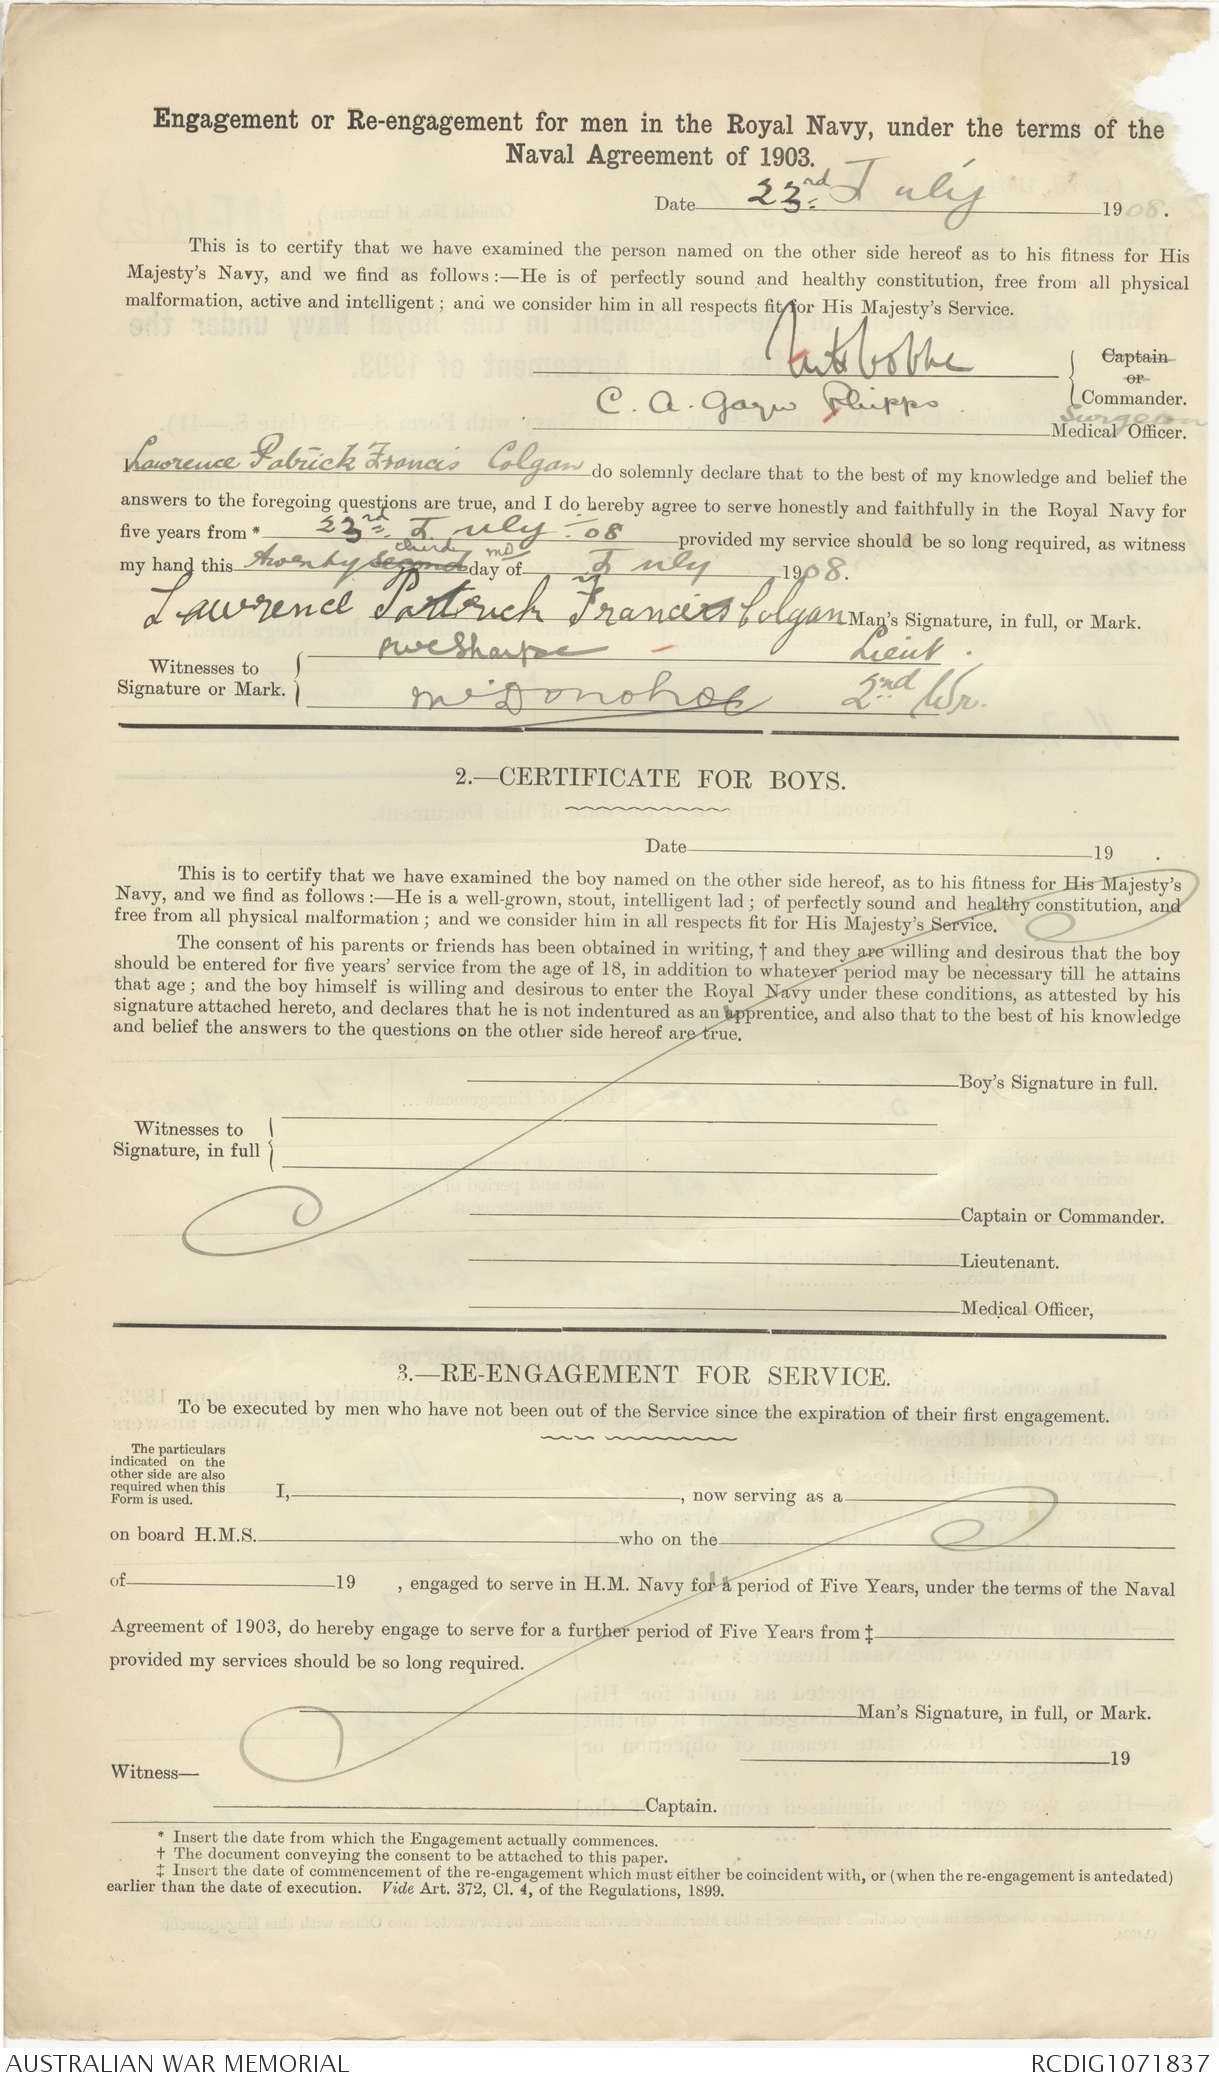 Engagement or Re-engagement for men in the Royal Navy, under the terms of the
Naval Agreement of 1903.
Date 23rd July 1908.
This is to certify that we have examined the person named on the other side hereof as to his fitness for His
Majesty's Navy, and we find as follows:—He is of perfectly sound and healthy constitution, free from all physical
malformation, active and intelligent; and we consider him in all respects fit for His Majesty's Service.
Captain
or
Commander.
C. A. Phipps
Surgeon
Medical Officer.
Lawrence Patrick Francis Colgan do solemnly declare that to the best of my knowledge and belief the
answers to the foregoing questions are true, and I do hereby agree to serve honestly and faithfully in the Royal Navy for
five years from * 23rd July - 08 provided my service should be so long required, as witness
third
my hand this twenty second day of July 1908.
Lawrence Patrick Francis Colgan Man's Signature, in full, or Mark.
Sharpe Lieut.
Witnesses to
Signature or Mark.
McDonohoe 2nd Wr.
2.—CERTIFICATE FOR BOYS.
Date 19 .
This is to certify that we have examined the boy named on the other side hereof, as to his fitness for His Majesty's
Navy, and we find as follows:—He is a well-grown, stout, intelligent lad; of perfectly sound and healthy constitution, and
free from all physical malformation; and we consider him in all respects fit for His Majesty's Service.
The consent of his parents or friends has been obtained in writing, † and they are willing and desirous that the boy
should be entered for five years' service from the age of 18, in addition to whatever period may be necessary till he attains
that age; and the boy himself is willing and desirous to enter the Royal Navy under these conditions, as attested by his
signature attached hereto, and declares that he is not indentured as an apprentice, and also that to the best of his knowledge
and belief the answers to the questions on the other side hereof are true.
Boy's Signature in full.
Witnesses to
Signature, in full
Captain or Commander.
Lieutenant.
Medical Officer,
3.—RE-ENGAGEMENT FOR SERVICE.
To be executed by men who have not been out of the Service since the expiration of their first engagement.
The particulars
indicated on the
other side are also
required when this
Form is used.
I, , now serving as a
on board H.M.S. who on the
of 19 , engaged to serve in H.M. Navy for a period of Five Years, under the terms of the Naval
Agreement of 1903, do hereby engage to serve for a further period of Five Years from ‡
provided my services should be so long required.
Man's Signature, in full, or Mark.
19
Witness—
Captain.
* Insert the date from which the Engagement actually commences.
† The document conveying the consent to be attached to this paper.
‡ Insert the date of commencement of the re-engagement which must either be coincident with, or (when the re-engagement is antedated)
earlier than the date of execution. Vide Art. 372, Cl. 4, of the Regulations, 1899.
AUSTRALIAN WAR MEMORIAL
RCDIG1071837